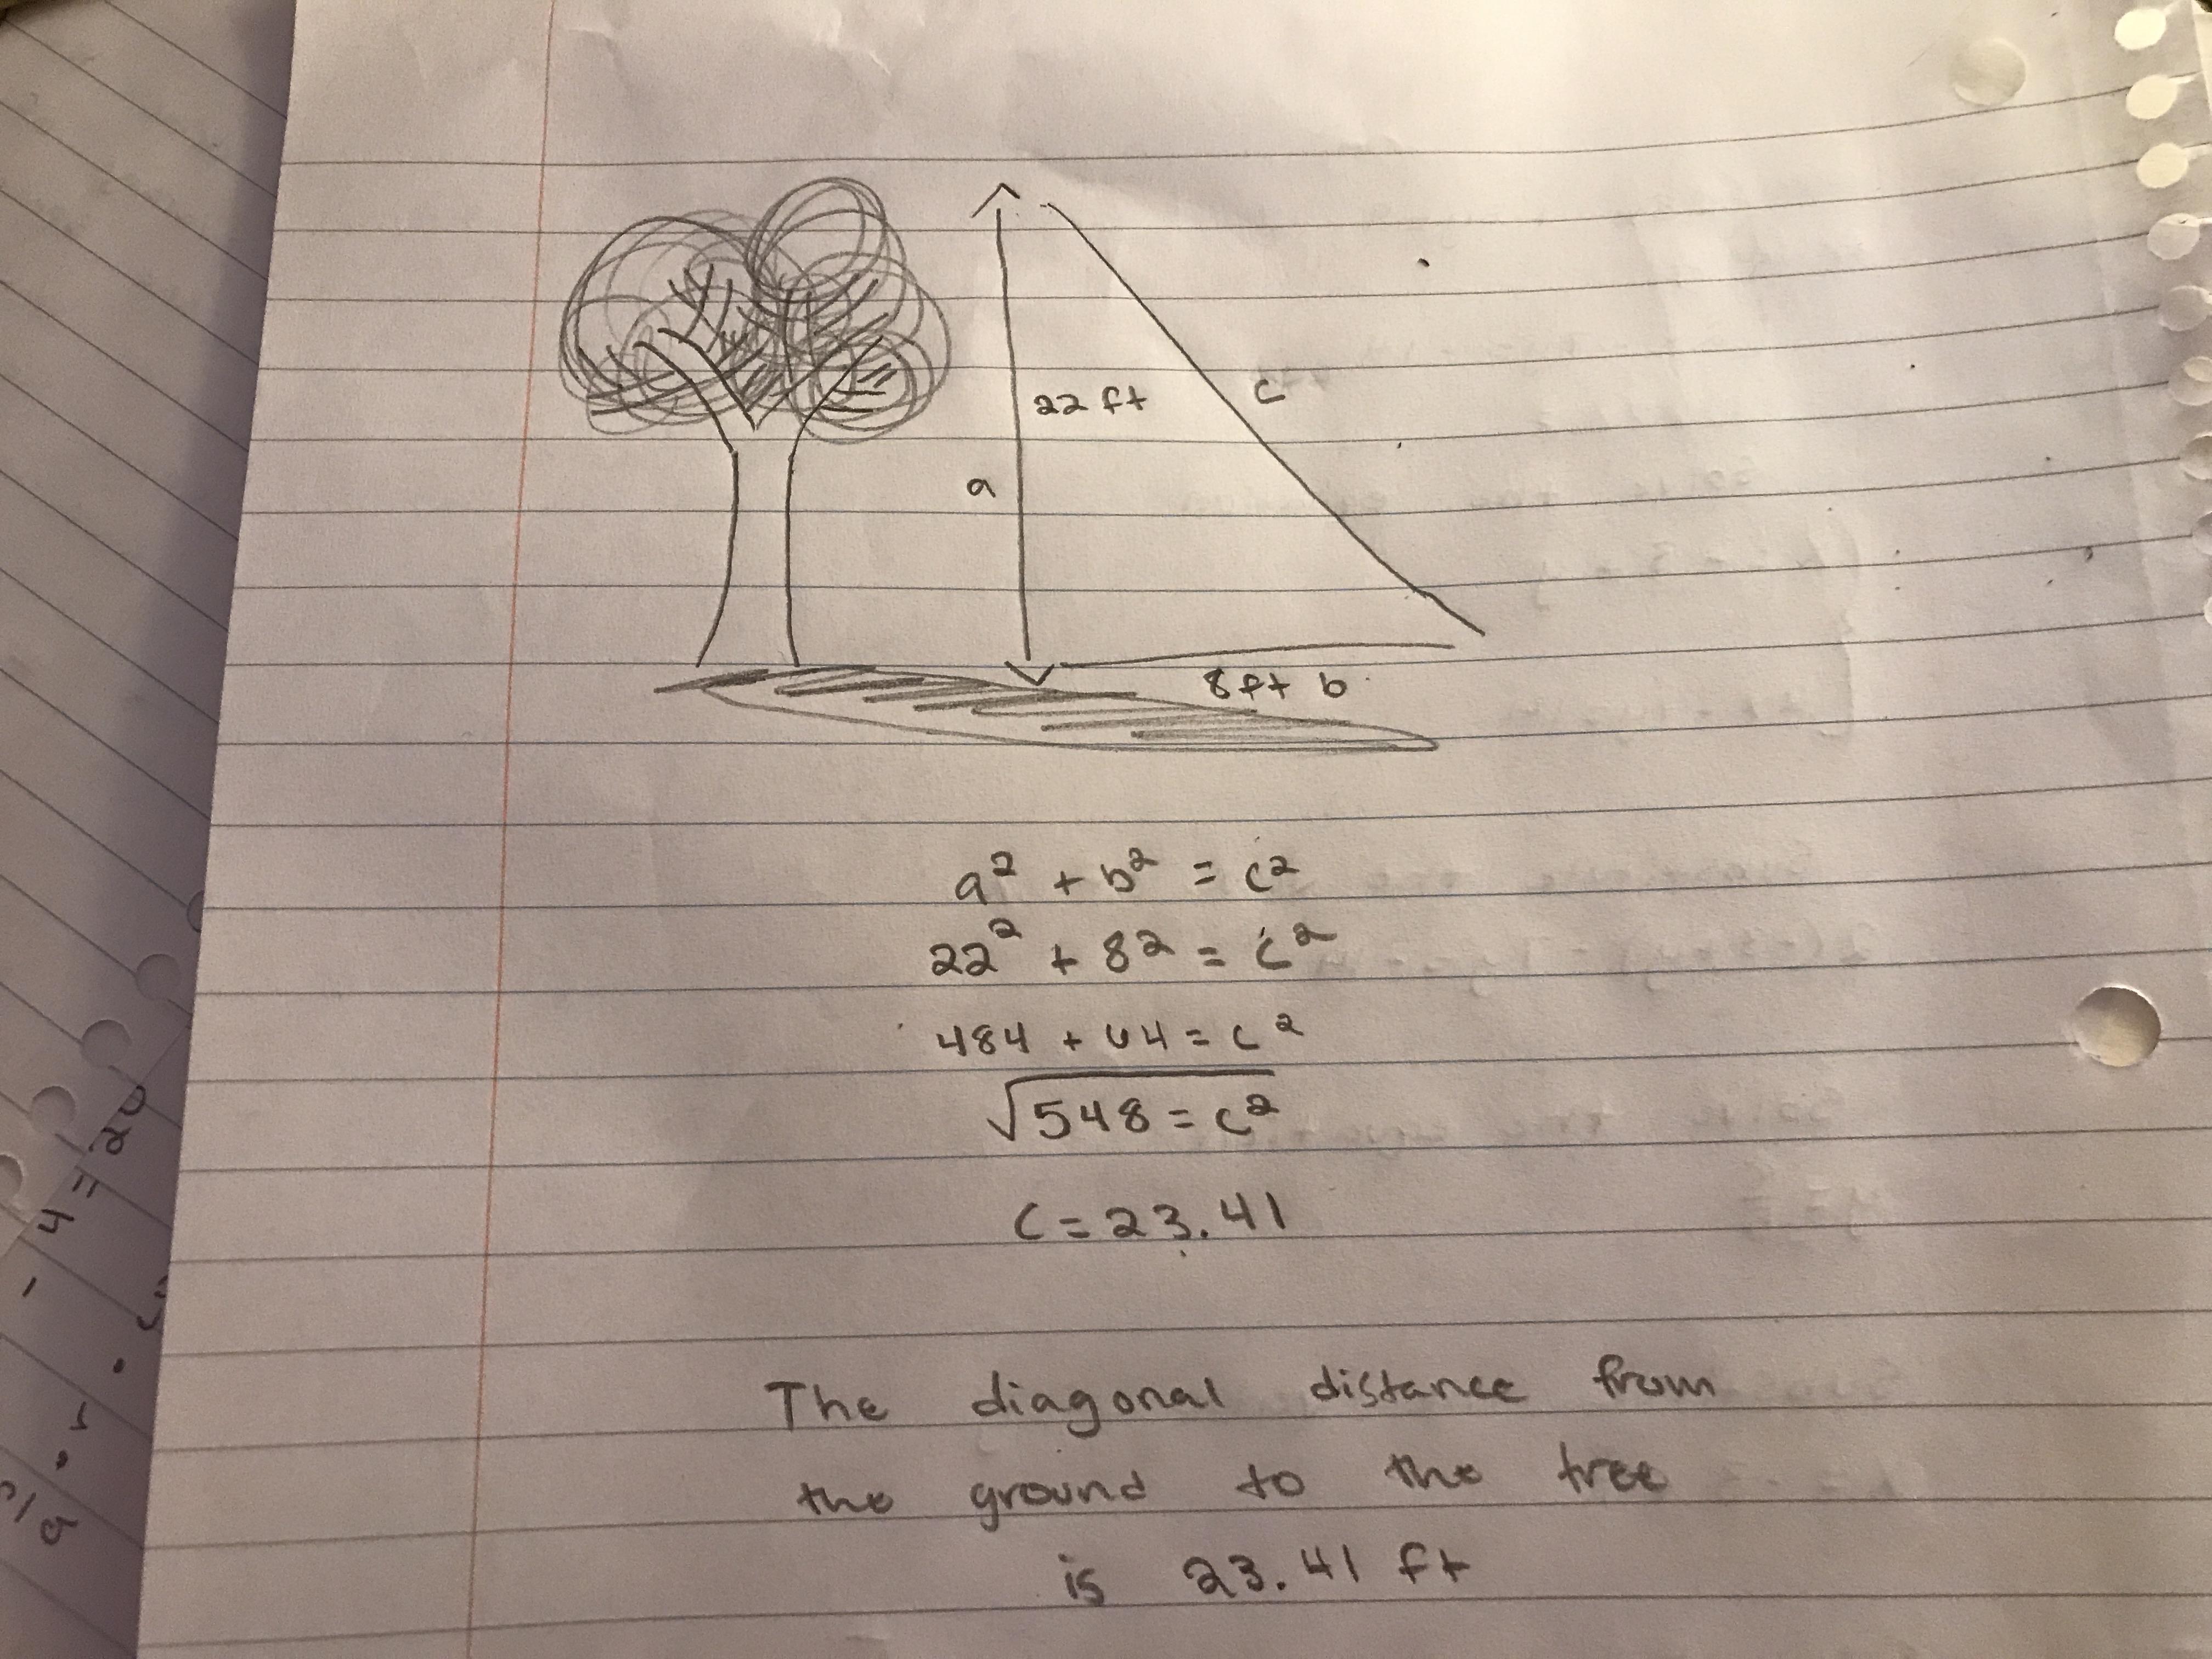 22 ft
c
a
8ft b
a² + b² = c²
22² + 8² = c²
484 + 64 = c²
√548 = c²
c = 23.41
The diagonal distance from
the ground to the tree
is 23.41 ft
4 = 20